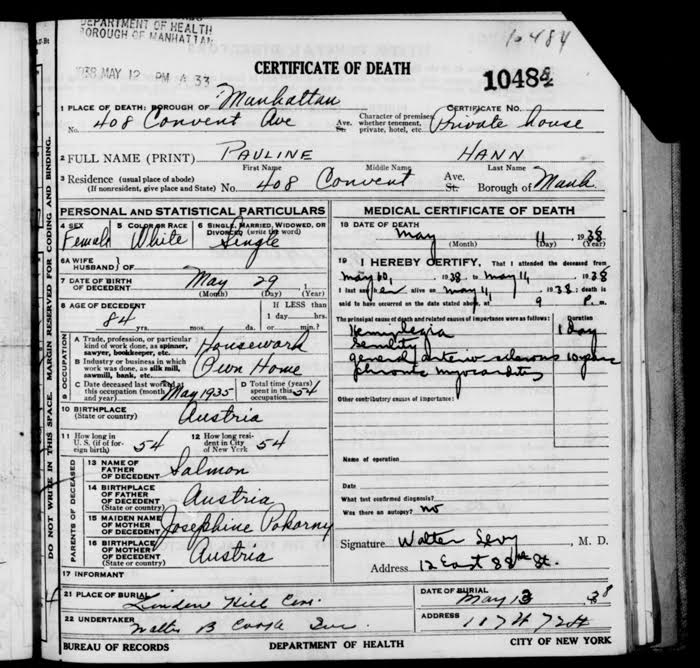 DEPARTMENT OF HEALTH
BOROUGH OF MANHATTAN
10484
1938 MAY 12 PM 4 33
CERTIFICATE OF DEATH
1048
1 PLACE OF DEATH: BOROUGH OF Manhattan
CERTIFICATE NO.
No. 408 Convent Ave Ave. St. Character of premises, whether tenement, private, hotel, etc. Private house
2 FULL NAME (PRINT) PAULINE HANN
First Name Middle Name Last Name
3 Residence (usual place of abode) (If nonresident, give place and State) No. 408 Convent Ave. St. Borough of Manh.
PERSONAL AND STATISTICAL PARTICULARS
4 SEX Female
5 COLOR OR RACE White
6 SINGLE, MARRIED, WIDOWED, OR DIVORCED (write the word) Single
6A WIFE HUSBAND } OF
7 DATE OF BIRTH OF DECEDENT May 29
(Month) (Day) (Year)
8 AGE OF DECEDENT 84 yrs. mos. da.
If LESS than 1 day hrs. or min.?
9 OCCUPATION
A Trade, profession, or particular kind of work done, as spinner, sawyer, bookkeeper, etc. Housework
B Industry or business in which work was done, as silk mill, sawmill, bank, etc. Own Home
C Date deceased last worked at this occupation (month and year) May 1935
D Total time (years) spent in this occupation 54
10 BIRTHPLACE (State or country) Austria
11 How long in U. S. (if of foreign birth) 54
12 How long resident in City of New York 54
PARENTS OF DECEASED
13 NAME OF FATHER OF DECEDENT Salmon
14 BIRTHPLACE OF FATHER OF DECEDENT (State or country) Austria
15 MAIDEN NAME OF MOTHER OF DECEDENT Josephine Pokorny
16 BIRTHPLACE OF MOTHER OF DECEDENT (State or country) Austria
17 INFORMANT
MEDICAL CERTIFICATE OF DEATH
18 DATE OF DEATH May 11, 1938
(Month) (Day) (Year)
19 I HEREBY CERTIFY, That I attended the deceased from
May 10, 1938 to May 11, 1938
I last saw her alive on May 11, 1938; death is
said to have occurred on the date stated above, at 9 P. m.
The principal cause of death and related causes of importance were as follows: Duration
Hemiplegia 1 day
Senility
general arterio sclerosis 10 years
chronic myocarditis
Other contributory causes of importance:
Name of operation
Date
What test confirmed diagnosis?
Was there an autopsy? no
Signature Walter Levy, M. D.
Address 12 East 88th St.
21 PLACE OF BURIAL Linden Hill Cem.
DATE OF BURIAL May 13 38
22 UNDERTAKER Walter B Cooke Inc.
ADDRESS 117 W 72 St
BUREAU OF RECORDS DEPARTMENT OF HEALTH CITY OF NEW YORK
DO NOT WRITE IN THIS SPACE. MARGIN RESERVED FOR CODING AND BINDING.